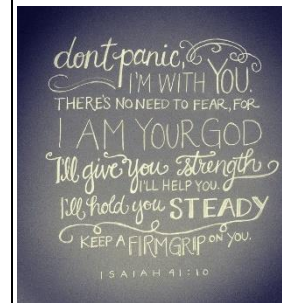 dont panic,
I'M WITH YOU.
THERE'S NO NEED TO FEAR, FOR
I AM YOUR GOD
I'll give you strength
I'LL HELP YOU.
I'll hold you STEADY
KEEP A FIRM GRIP ON YOU.
ISAIAH 41:10